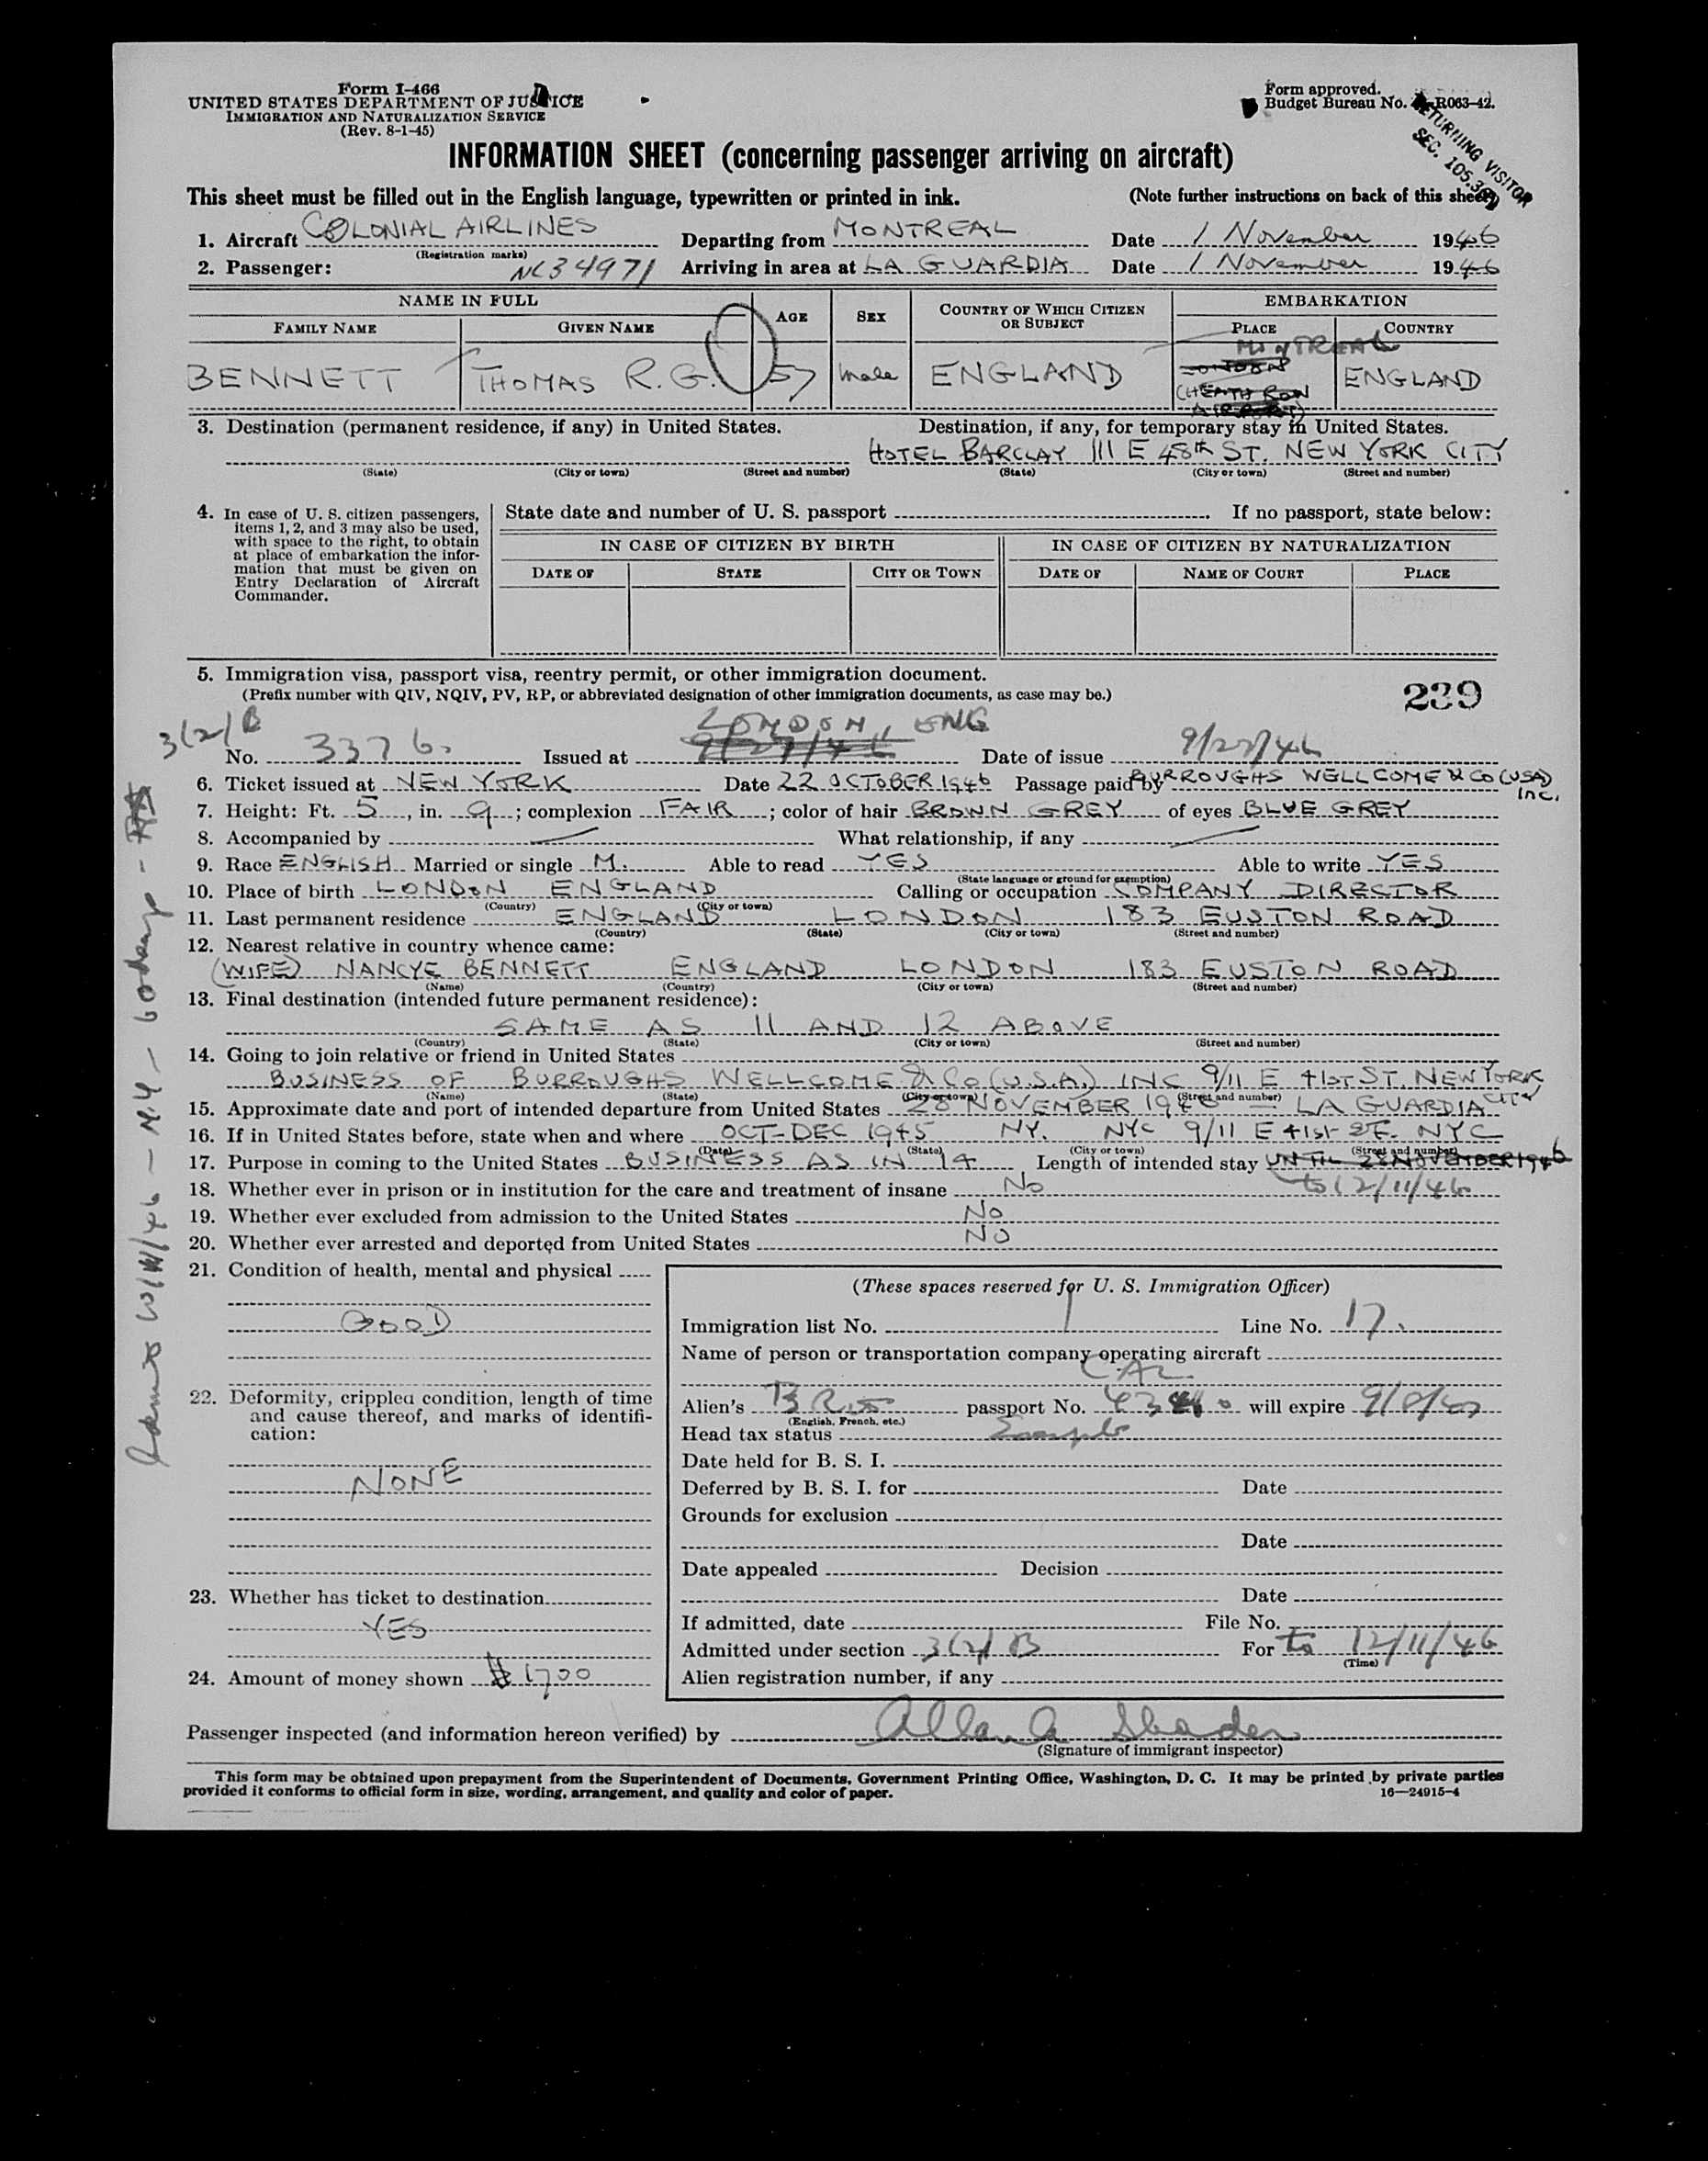 Form I-466
UNITED STATES DEPARTMENT OF JUSTICE
IMMIGRATION AND NATURALIZATION SERVICE
(Rev. 8-1-45)
Form approved.
Budget Bureau No. R063-42.
RETURNING VISITOR
SEC. 105.3
INFORMATION SHEET (concerning passenger arriving on aircraft)
This sheet must be filled out in the English language, typewritten or printed in ink. (Note further instructions on back of this sheet)
1. Aircraft COLONIAL AIRLINES Departing from MONTREAL Date 1 November 1946
(Registration marks)
2. Passenger: NC34971 Arriving in area at LA GUARDIA Date 1 November 1946
NAME IN FULL AGE SEX COUNTRY OF WHICH CITIZEN OR SUBJECT EMBARKATION
FAMILY NAME GIVEN NAME PLACE COUNTRY
MONTREAL
BENNETT THOMAS R.G. 57 Male ENGLAND LONDON (HEATH ROW AIRPORT) ENGLAND
3. Destination (permanent residence, if any) in United States. Destination, if any, for temporary stay in United States.
HOTEL BARCLAY 111 E 48th ST. NEW YORK CITY
(State) (City or town) (Street and number) (State) (City or town) (Street and number)
4. In case of U. S. citizen passengers, items 1, 2, and 3 may also be used, with space to the right, to obtain at place of embarkation the information that must be given on Entry Declaration of Aircraft Commander.
State date and number of U. S. passport If no passport, state below:
IN CASE OF CITIZEN BY BIRTH IN CASE OF CITIZEN BY NATURALIZATION
DATE OF STATE CITY OR TOWN DATE OF NAME OF COURT PLACE
5. Immigration visa, passport visa, reentry permit, or other immigration document.
(Prefix number with QIV, NQIV, PV, RP, or abbreviated designation of other immigration documents, as case may be.)
239
3(2)B LONDON, ENG
No. 3376. Issued at 9/27/46 Date of issue 9/27/46
6. Ticket issued at NEW YORK Date 22 OCTOBER 1946 Passage paid by BURROUGHS WELLCOME & CO (USA) Inc.
7. Height: Ft. 5, in. 9; complexion FAIR; color of hair BROWN GREY of eyes BLUE GREY
8. Accompanied by What relationship, if any
9. Race ENGLISH Married or single M. Able to read YES Able to write YES
(State language or ground for exemption)
10. Place of birth LONDON ENGLAND Calling or occupation COMPANY DIRECTOR
(Country) (City or town)
11. Last permanent residence ENGLAND LONDON 183 EUSTON ROAD
(Country) (State) (City or town) (Street and number)
12. Nearest relative in country whence came:
(WIFE) NANCYE BENNETT ENGLAND LONDON 183 EUSTON ROAD
(Name) (Country) (City or town) (Street and number)
13. Final destination (intended future permanent residence):
SAME AS 11 AND 12 ABOVE
(Country) (State) (City or town) (Street and number)
14. Going to join relative or friend in United States
BUSINESS OF BURROUGHS WELLCOME & CO (U.S.A.) INC 9/11 E 41ST ST. NEW YORK CITY
(Name) (State) (City or town) (Street and number)
15. Approximate date and port of intended departure from United States 28 NOVEMBER 1946 — LA GUARDIA
16. If in United States before, state when and where OCT-DEC 1945 NY. NYC 9/11 E 41st ST. NYC
(Date) (State) (City or town) (Street and number)
17. Purpose in coming to the United States BUSINESS AS IN 14 Length of intended stay UNTIL 28 NOVEMBER 1946
18. Whether ever in prison or in institution for the care and treatment of insane No to 12/11/46
19. Whether ever excluded from admission to the United States No
20. Whether ever arrested and deported from United States NO
21. Condition of health, mental and physical
GOOD
22. Deformity, crippled condition, length of time and cause thereof, and marks of identification:
NONE
23. Whether has ticket to destination
YES
24. Amount of money shown $1700
(These spaces reserved for U. S. Immigration Officer)
Immigration list No. 1 Line No. 17.
Name of person or transportation company operating aircraft
CAL
Alien's Brit passport No. will expire
(English, French, etc.)
Head tax status Exempt
Date held for B. S. I.
Deferred by B. S. I. for Date
Grounds for exclusion
Date
Date appealed Decision
Date
If admitted, date File No.
Admitted under section 3(2)B For to 12/11/46
(Time)
Alien registration number, if any
Passenger inspected (and information hereon verified) by
(Signature of immigrant inspector)
This form may be obtained upon prepayment from the Superintendent of Documents, Government Printing Office, Washington, D. C. It may be printed by private parties
provided it conforms to official form in size, wording, arrangement, and quality and color of paper. 16—24915-4
N.Y. — 60 days